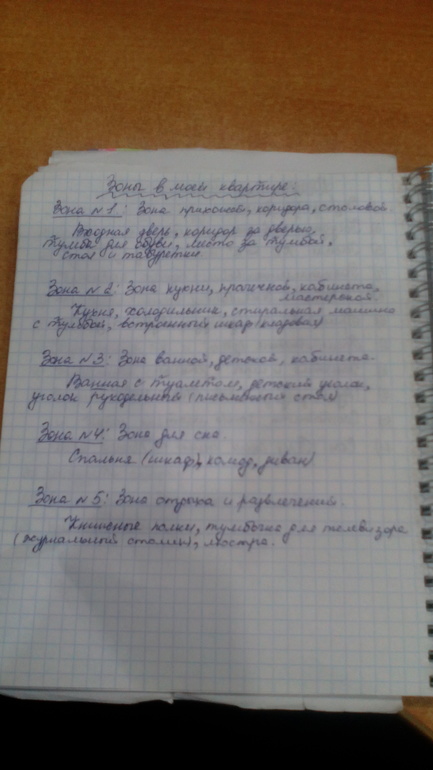 Зоны в моей квартире:
Зона №1: Зона прихожей, коридора, столовой.
Входная дверь, коридор за дверью,
тумба для обуви, место за тумбой,
стол и табуретки
Зона №2: Зона кухни, прачечной, кабинета,
мастерской
Кухня, холодильник, стиральная машина
с тумбой, встроенный шкаф (кладовая)
Зона №3: Зона ванной, детской, кабинета.
Ванная с туалетом, детский уголок,
уголок рукодельный (письменный стол)
Зона №4: Зона для сна.
Спальня (шкаф), комод, диван)
Зона №5: Зона отдыха и развлечений.
Книжные полки, тумбочка для телевизора
(журнальный столик), люстра.